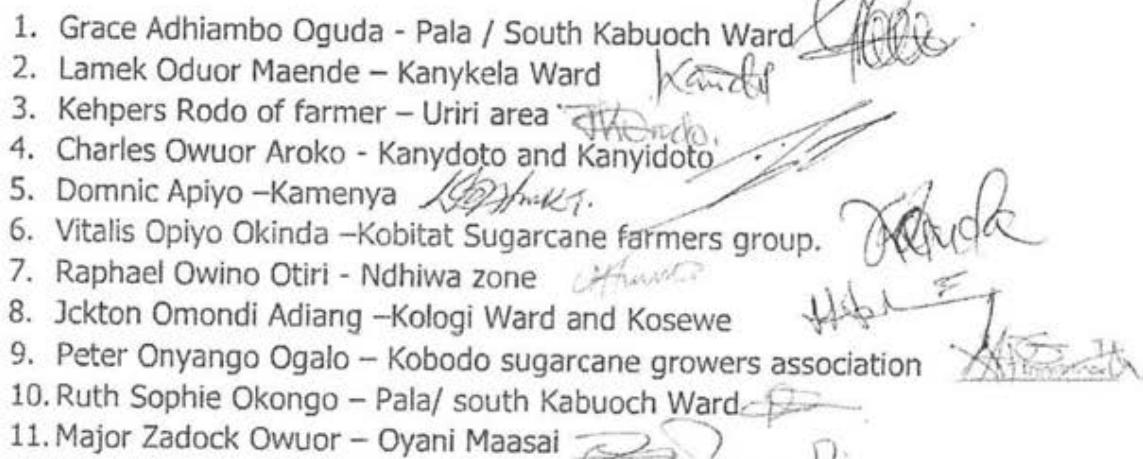 1. Grace Adhiambo Oguda - Pala / South Kabuoch Ward
2. Lamek Oduor Maende – Kanykela Ward
3. Kehpers Rodo of farmer – Uriri area
4. Charles Owuor Aroko - Kanydoto and Kanyidoto
5. Domnic Apiyo –Kamenya
6. Vitalis Opiyo Okinda –Kobitat Sugarcane farmers group.
7. Raphael Owino Otiri - Ndhiwa zone
8. Jckton Omondi Adiang –Kologi Ward and Kosewe
9. Peter Onyango Ogalo – Kobodo sugarcane growers association
10. Ruth Sophie Okongo – Pala/ south Kabuoch Ward
11. Major Zadock Owuor – Oyani Maasai